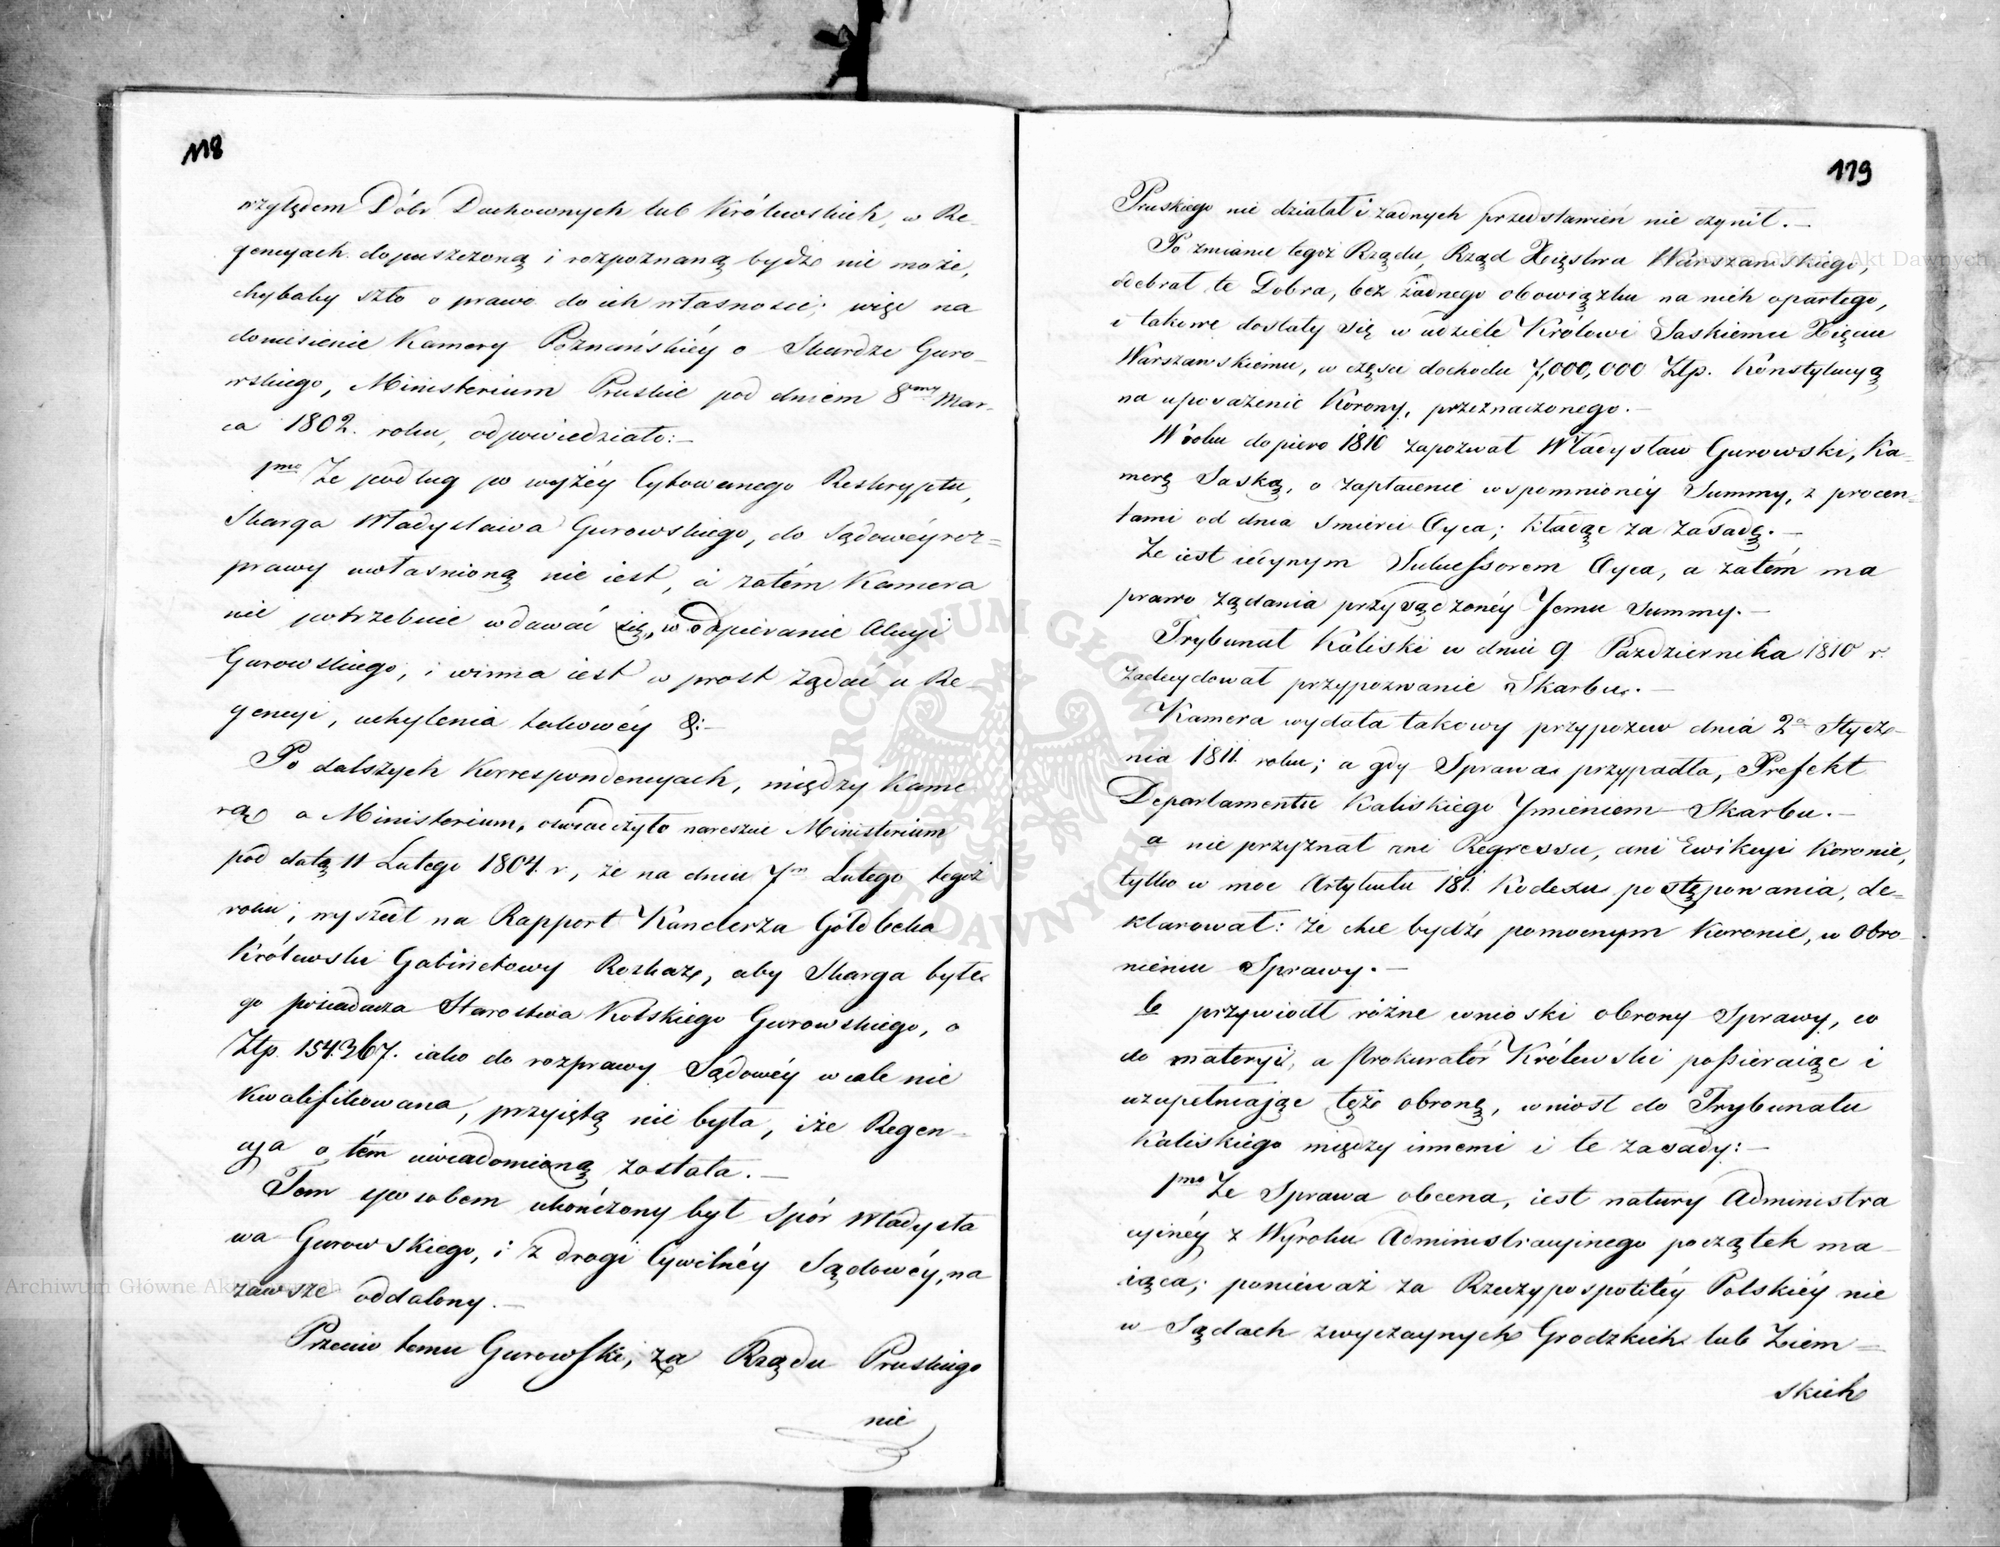 118
względem Dóbr Duchownych lub Królewskich, w Re-
gencyach dopuszczoną i rozpoznaną bydź nie może,
chybaby szło o prawo do ich własności; więc na
doniesienie Kamery Poznańskiéy o Skardze Guro-
wskiego, Ministerium Pruskie pod dniem 8ᵐʸ Mar-
ca 1802. roku, odpowiedziało:—
1ᵐᵒ Że podług po wyżéy Cytowanego Reskryptu,
Skarga Władysława Gurowskiego, do Sądowéy roz=
prawy uwłasnioną nie iest, a zatém Kamera
nie potrzebnie wdawać się, w odpieranie Akcyi
Gurowskiego, i winna iest w prost żądać u Re-
gencyi, uchylenia takowéy &:—
Po dalszych Korrespondencyach, między Kame
rą a Ministerium, oświadczyło nareszcie Ministerium
pod datą 11 Lutego 1804. r, że na dniu 7ᵐ Lutego tegoż
roku, wyszedł na Rapport Kanclerza Goldbecka
Królewski Gabinetowy Rozkaz, aby Skarga byłe-
go posiadacza Starostwa Kolskiego Gurowskiego, o
Złp. 154367. iako do rozprawy Sądowéy wcale nie
kwalifikowana, przyiętą nie była, i że Regen-
cya o tém uwiadomioną została.—
Tem sposobem ukończony był spór Władysła
wa Gurowskiego, i z drogi Cywilnéy Sądowéy, na
zawsze oddalony.—
Przeciw temu Gurowski, za Rządu Pruskiego
nie
119
Pruskiego nie działał i żadnych przedstawień nie czynił.—
Po zmianie tegoż Rządu, Rząd Xięstwa Warszawskiego,
odebrał te Dobra, bez żadnego obowiązku na nich opartego,
i takowe dostały się w udziele Królowi Saskiemu Xięciu
Warszawskiemu, w części dochodu 7,000,000 Złp. Konstytucyą
na uposażenie Korony, przeznaczonego.—
W roku dopiero 1810 zapozwał Władysław Gurowski, Ka-
merę Saską, o zapłacenie wspomnionéy Summy, z procen-
tami od dnia śmierci Oyca; kładąc za zasadę.—
Że iest iedynym Sukcessorem Oyca, a zatém ma
prawo żądania przysądzonéy Jemu Summy.—
Trybunał Kaliski w dniu 9 Października 1810 r.
zadecydował przypozwanie Skarbu.—
Kamera wydała takowy przypozew dnia 2ᵍ Stycz-
nia 1811. roku; a gdy Sprawa przypadła, Prefekt
Departamentu Kaliskiego Ymieniem Skarbu.—
a nie przyznał ani Regressu, ani Ewikcyi Koronie,
tylko w moc Artykułu 181. Kodexu postępowania, de-
klarował: że chce bydź pomocnym Koronie, w obro-
nieniu Sprawy.—
b przywiódł różne wnioski obrony Sprawy, co
do materyi, a Prokurator Królewski popieraiąc i
uzupełniając tęże obronę, wniosł do Trybunału
Kaliskiego między innemi i te zasady:—
1ᵐᵒ Że Sprawa obecna, iest natury Administra
cyinéy z Wyroku Administracyinego początek ma-
iąca; ponieważ za Rzeczypospolitéy Polskiéy nie
w Sądach zwyczaynych Grodzkich lub Ziem=
skich